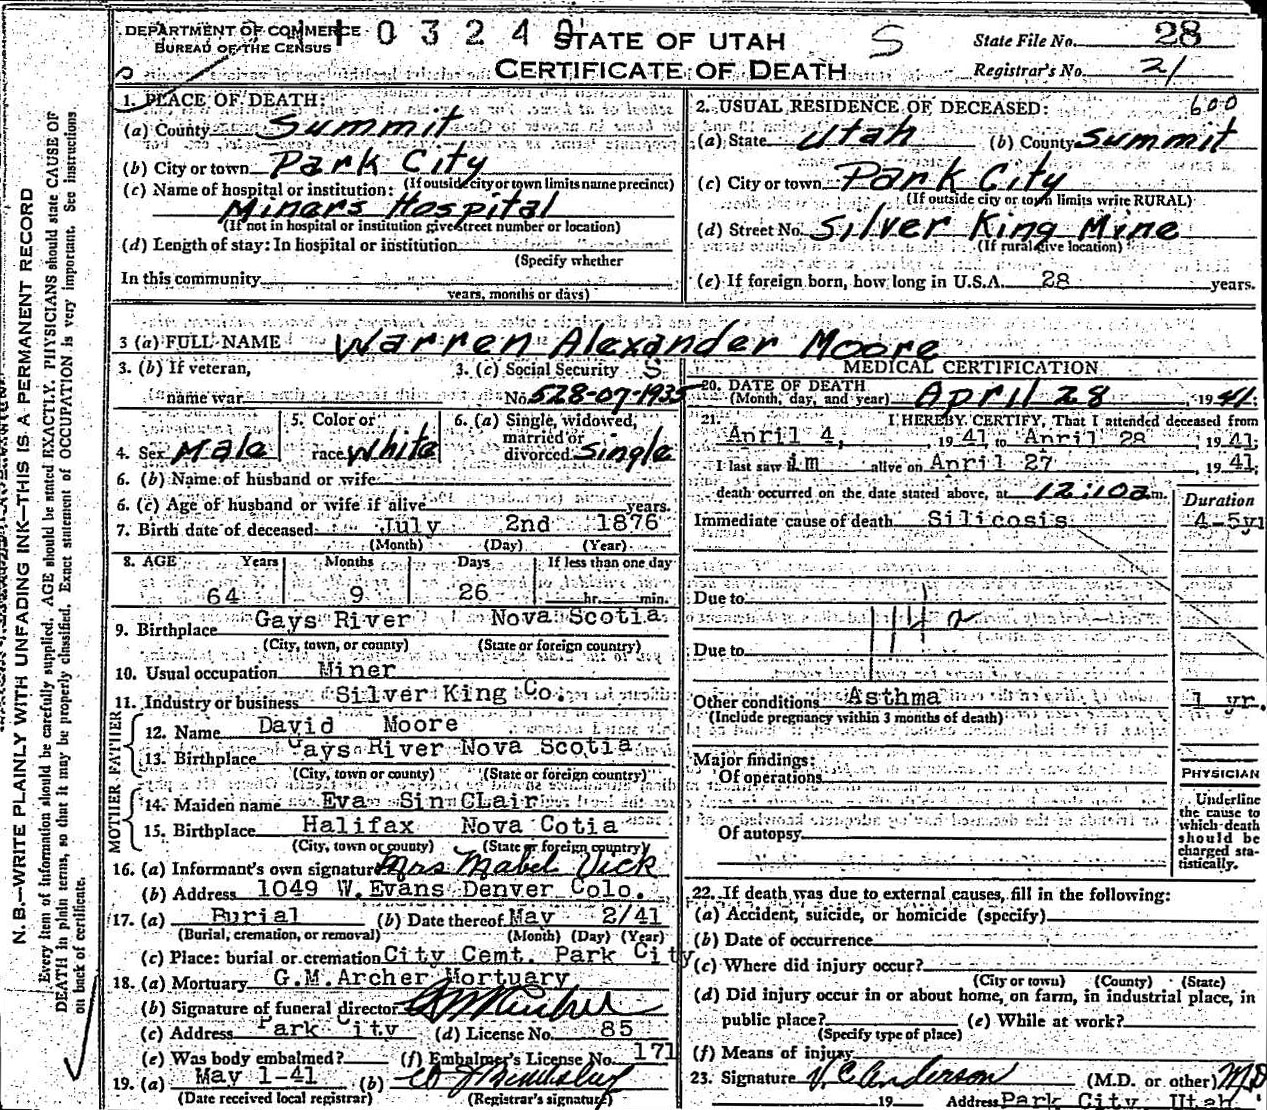 DEPARTMENT OF COMMERCE
BUREAU OF THE CENSUS
03240
STATE OF UTAH
CERTIFICATE OF DEATH
S
State File No. 28
Registrar's No. 21
N. B.—WRITE PLAINLY WITH UNFADING INK—THIS IS A PERMANENT RECORD
Every item of information should be carefully supplied. AGE should be stated EXACTLY. PHYSICIANS should state CAUSE OF
DEATH in plain terms, so that it may be properly classified. Exact statement of OCCUPATION is very important. See instructions
on back of certificate.
1. PLACE OF DEATH:
(a) County Summit
(b) City or town Park City
(If outside city or town limits name precinct)
(c) Name of hospital or institution:
Miners Hospital
(If not in hospital or institution give street number or location)
(d) Length of stay: In hospital or institution
(Specify whether
In this community
years, months or days)
2. USUAL RESIDENCE OF DECEASED: 600
(a) State Utah (b) County Summit
(c) City or town Park City
(If outside city or town limits write RURAL)
(d) Street No. Silver King Mine
(If rural give location)
(e) If foreign born, how long in U.S.A. 28 years.
3 (a) FULL NAME Warren Alexander Moore
3. (b) If veteran,
name war
3. (c) Social Security S
No. 528-07-1935
4. Sex Male
5. Color or
race White
6. (a) Single, widowed,
married or
divorced Single
6. (b) Name of husband or wife
6. (c) Age of husband or wife if alive years.
7. Birth date of deceased July 2nd 1876
(Month) (Day) (Year)
8. AGE Years Months Days If less than one day
64 9 26 hr. min.
9. Birthplace Gays River Nova Scotia
(City, town, or county) (State or foreign country)
10. Usual occupation Miner
11. Industry or business Silver King Co.
FATHER
12. Name David Moore
13. Birthplace Gays River Nova Scotia
(City, town or county) (State or foreign country)
MOTHER
14. Maiden name Eva SinClair
15. Birthplace Halifax Nova Cotia
(City, town or county) (State or foreign country)
16. (a) Informant's own signature Mrs Mabel Vick
(b) Address 1049 W. Evans Denver Colo.
17. (a) Burial (b) Date thereof May 2/41
(Burial, cremation, or removal) (Month) (Day) (Year)
(c) Place: burial or cremation City Cemt. Park City
18. (a) Mortuary G.M. Archer Mortuary
(b) Signature of funeral director GM Archer
(c) Address Park City (d) License No. 85
(e) Was body embalmed? (f) Embalmer's License No. 171
19. (a) May 1-41 (b)
(Date received local registrar) (Registrar's signature)
MEDICAL CERTIFICATION
20. DATE OF DEATH
(Month, day, and year) April 28, 1941.
21. I HEREBY CERTIFY, That I attended deceased from
April 4, 1941 to April 28, 1941;
I last saw him alive on April 27, 1941;
death occurred on the date stated above, at 12:10 a m.
Duration
Immediate cause of death Silicosis 4-5 y
Due to
114 a
Due to
Other conditions Asthma 1 yr.
(Include pregnancy within 3 months of death)
Major findings:
Of operations
Of autopsy
PHYSICIAN
Underline
the cause to
which death
should be
charged sta-
tistically.
22. If death was due to external causes, fill in the following:
(a) Accident, suicide, or homicide (specify)
(b) Date of occurrence
(c) Where did injury occur?
(City or town) (County) (State)
(d) Did injury occur in or about home, on farm, in industrial place, in
public place? (e) While at work?
(Specify type of place)
(f) Means of injury
23. Signature V. C. Anderson (M.D. or other) MD
19 Address Park City, Utah